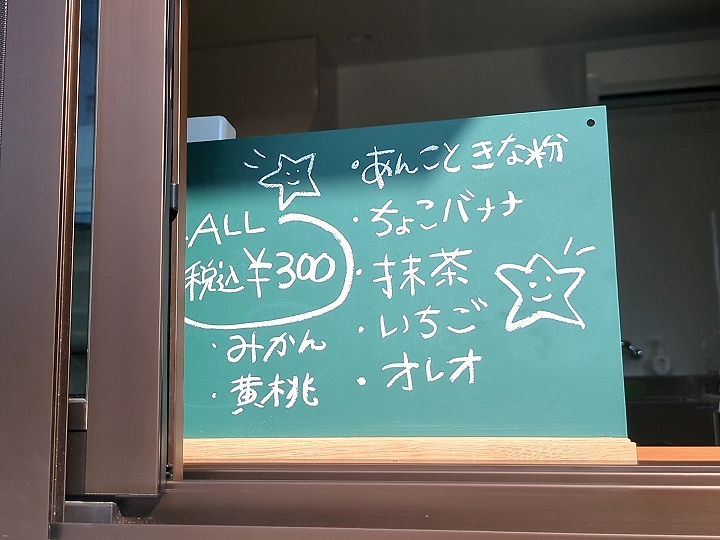 ALL
税込¥300
・みかん
・黄桃
・あんこときな粉
・ちょこバナナ
・抹茶
・いちご
・オレオ